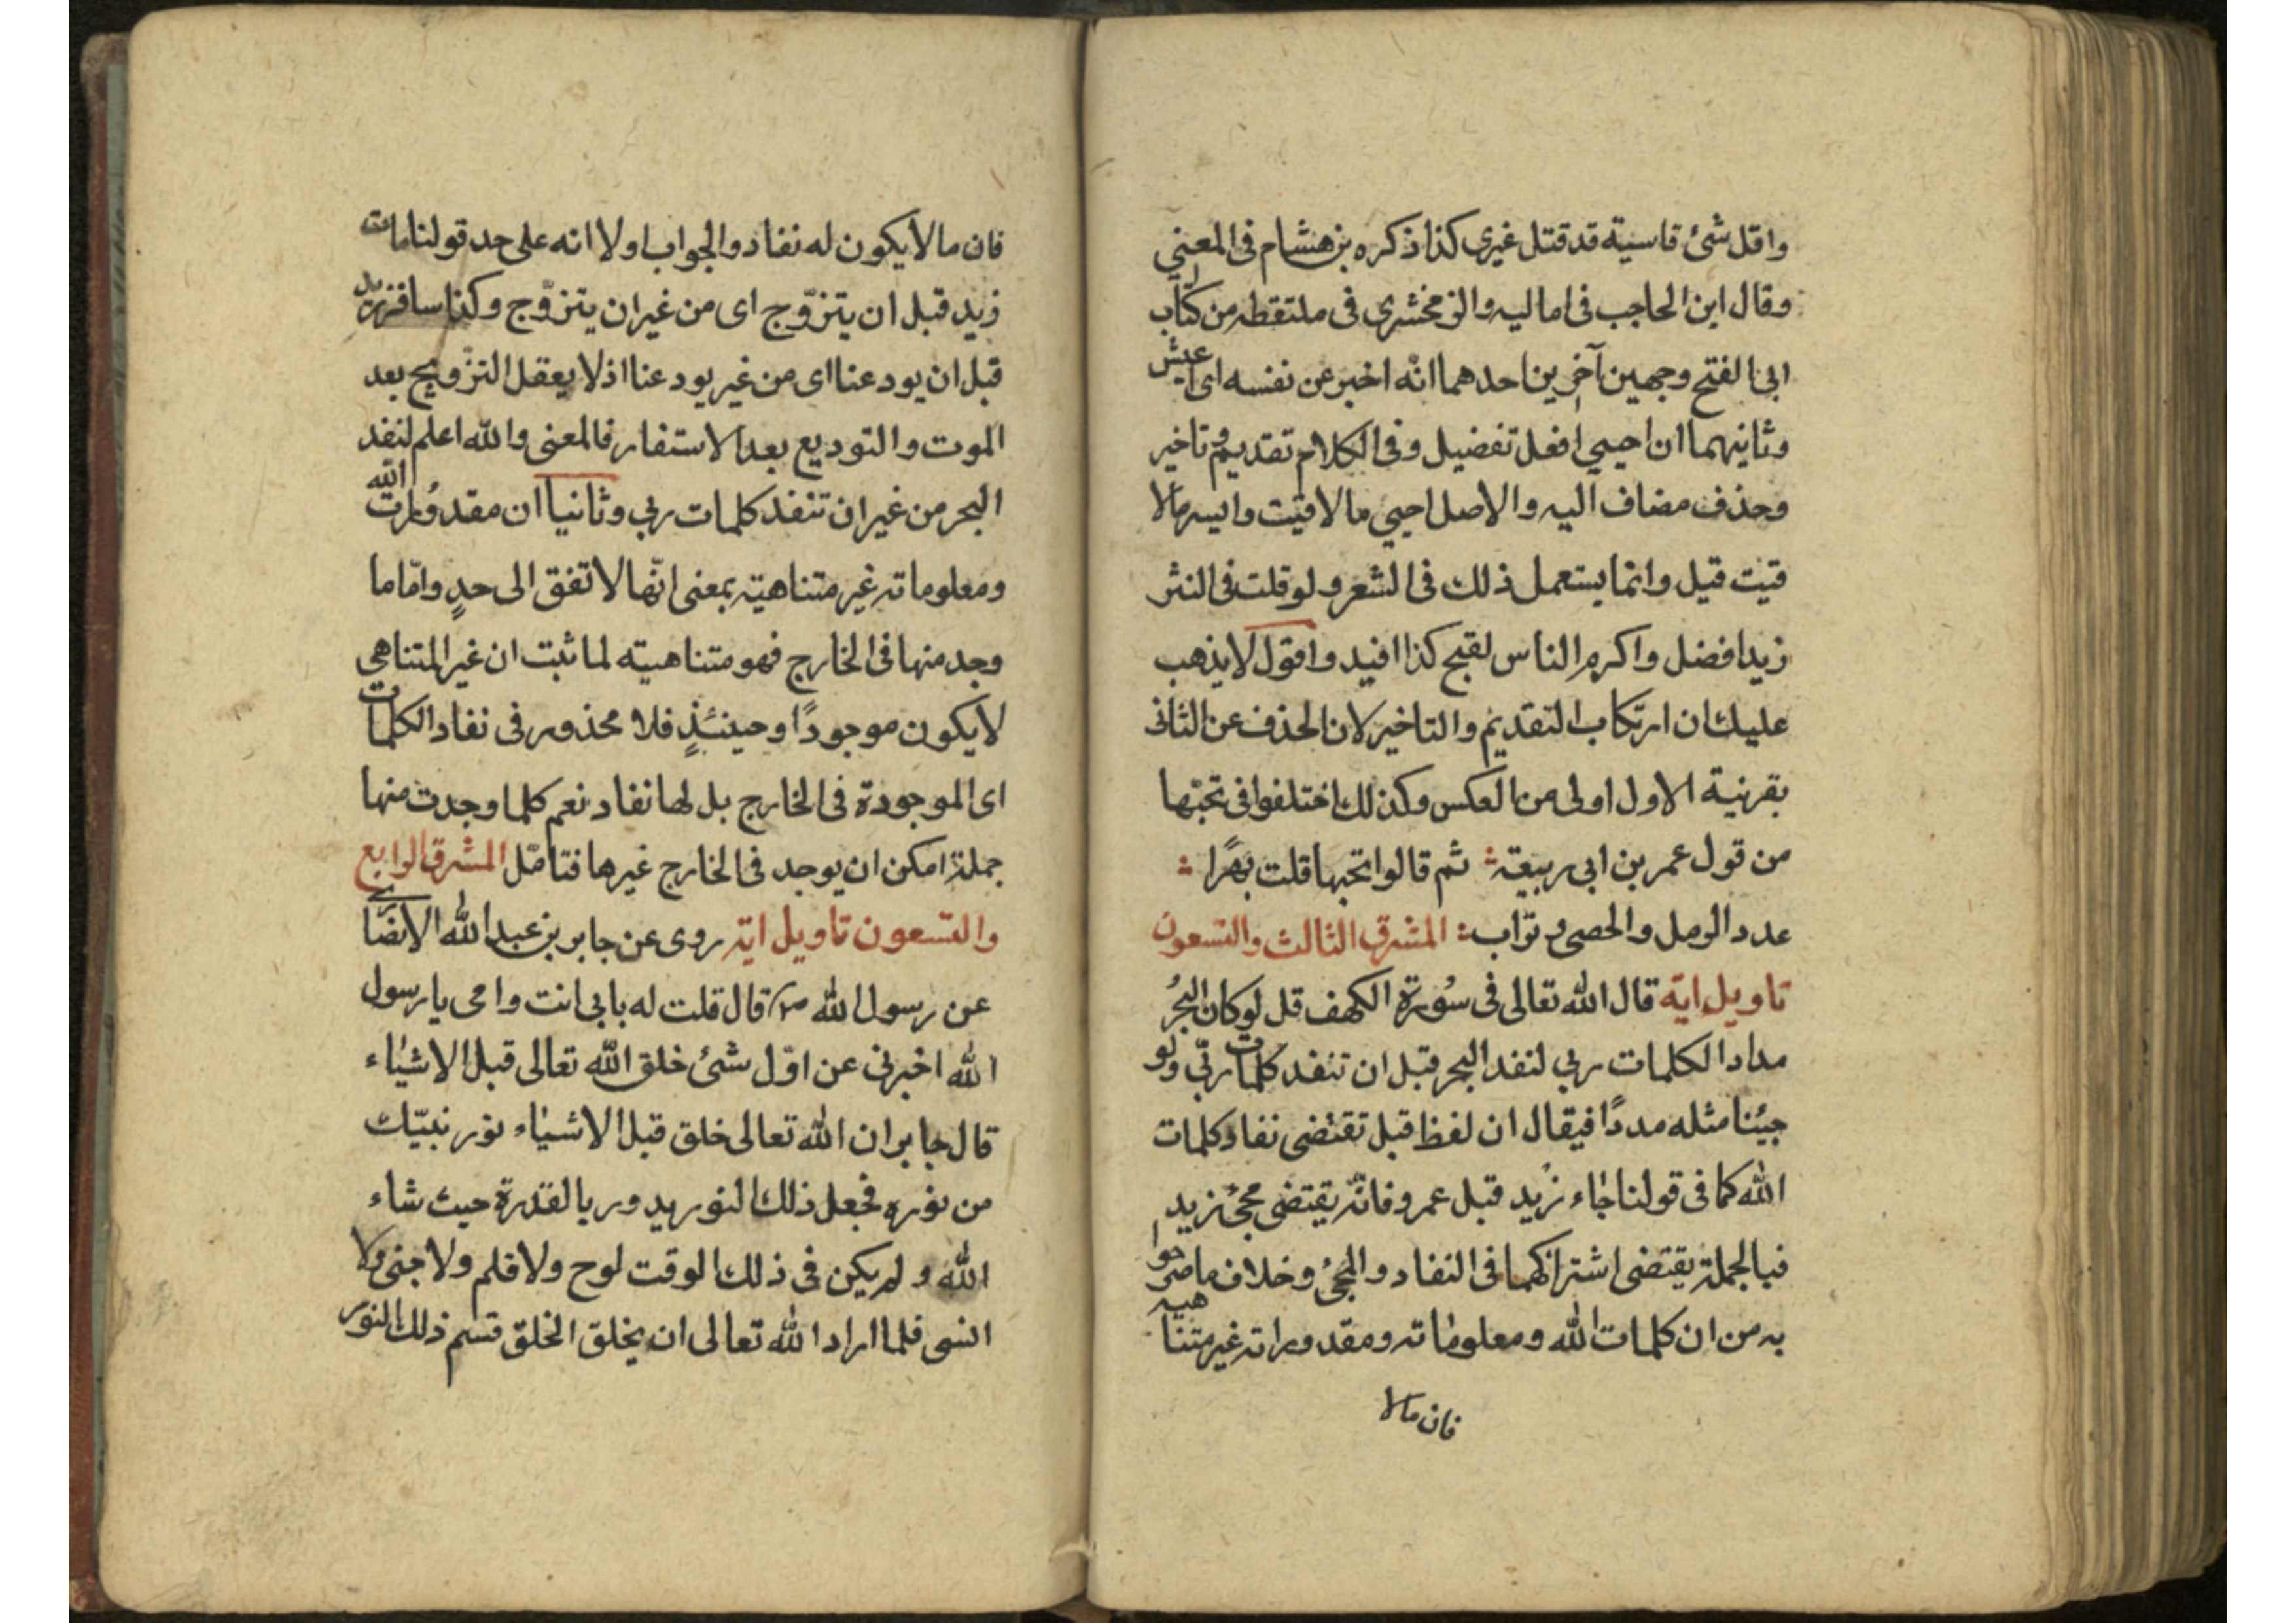 واقل شئ قاسيته قد قتل غيرى كذا ذكره بن هشام فى المعنى
وقال ابن الحاجب فى اماليه والزمخشرى فى ملتقطه من كتاب
ابى الفتح وجهين آخرين احدهما انّه اخبر عن نفسه اى اعيش
وثانيهما ان احيى افعل تفضيل وفى الكلام تقديم وتاخير
وحذف مضاف اليه والاصل احيى ما لاقيت وايسر ما لا
قيت قيل وانما يستعمل ذلك فى الشعر ولو قلت فى النثر
زيد افضل واكرم الناس لقبح كذا افيد واقول لا يذهب
عليك ان ارتكاب التقديم والتاخير لان الحذف عن الثانى
بقرنية الاول اولى من العكس وكذلك اختلفوا فى تحبّها
من قول عمر بن ابى ربيعة ؞ ثم قالوا تحبها قلت بهرًا ؞
عدد الرمل والحصى وتراب ؞ المشرق الثالث والتسعون
تاويل اية قال الله تعالى فى سُورة الكهف قل لو كان البحرُ
مدادا لكلمات ربي لنفد البحر قبل ان تنفد كلمات ربّي ولو
جئنا مثله مددًا فيقال ان لفظ قبل تقتضى نفاد كلمات
الله كما فى قولنا جاء زيد قبل عمرو فانّه يقتضى مجئ زيد
فبالجملة يقتضى اشتراكهما فى النفاد والمجئ وخلاف ما صرحوا
به من ان كلمات الله ومعلوماته ومقدوراته غير متناهيه
فان مالا
فان مالا يكون له نفاد والجواب اولا انه على حد قولنا مات
زيد قبل ان يتزوّج اى من غير ان يتزوّج وكذا سافر زيد
قبل ان يودعنا اى من غير يودعنا اذ لا يعقل التزّويج بعد
الموت والتوديع بعد الاستفار فالمعنى والله اعلم لنفد
البحر من غير ان تنفد كلمات ربي وثانيا ان مقدورات الله
ومعلوماته غير متناهيته بمعنى انّها لا تفق الى حدٍ وامّا ما
وجد منها فى الخارج فهو متناهيته لما ثبت ان غير المتناهي
لا يكون موجودًا وحينئذٍ فلا محذور فى نفاد الكلمات
اى الموجودة فى الخارج بل لها نفاد نعم كلما وجدت منها
جملة امكن ان يوجد فى الخارج غيرها فتامّل المشرق الرابع
والتسعون تاويل اية روى عن جابر بن عبد الله الانصارى
عن رسول الله ص قال قلت له بابي انت وامى يا رسول
الله اخبرنى عن اوّل شئ خلق الله تعالى قبل الاشياء
قال جابر ان الله تعالى خلق قبل الاشياء نور نبيّك
من نوره فجعل ذلك النور يدور بالقدرة حيث شاء
الله ولم يكن فى ذلك الوقت لوح ولا قلم ولا جنى ولا
انسى فلما اراد الله تعالى ان يخلق الخلق قسم ذلك النور